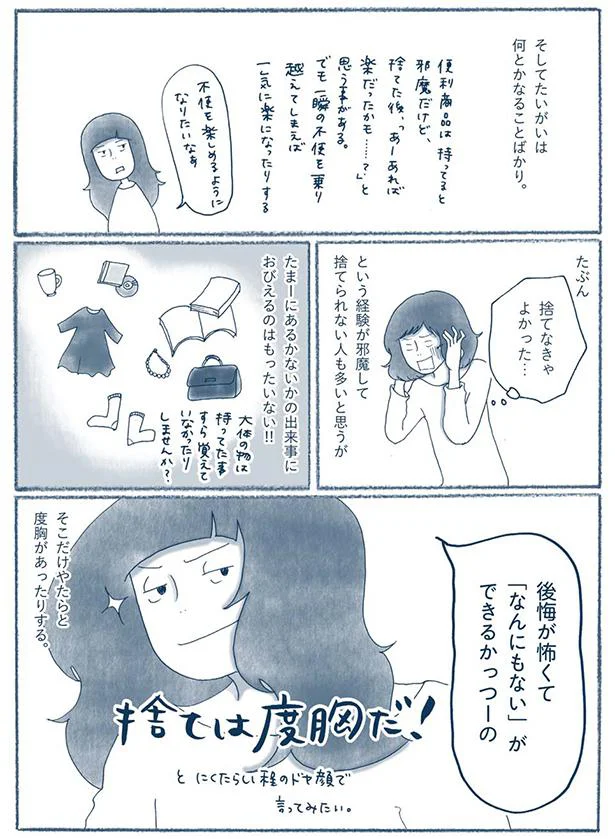 そしてたいがいは
何とかなることばかり。
便利商品は持ってると
邪魔だけど、
捨てた後、「あーあれば
楽だったかも……？」と
思う事がある。
でも一瞬の不便を乗り
越えてしまえば
一気に楽になったりする
不便を楽しめるように
なりたいなぁ
たぶん
捨てなきゃ
よかった…
という経験が邪魔して
捨てられない人も多いと思うが
たまーにあるかないかの出来事に
おびえるのはもったいない!!
大体の物は
持ってた事
すら覚えて
いなかったり
しませんか?
後悔が怖くて
「なんにもない」が
できるかっつーの
捨ては度胸だ!
と にくたらしい程のドヤ顔で
言ってみたい。
そこだけやたらと
度胸があったりする。